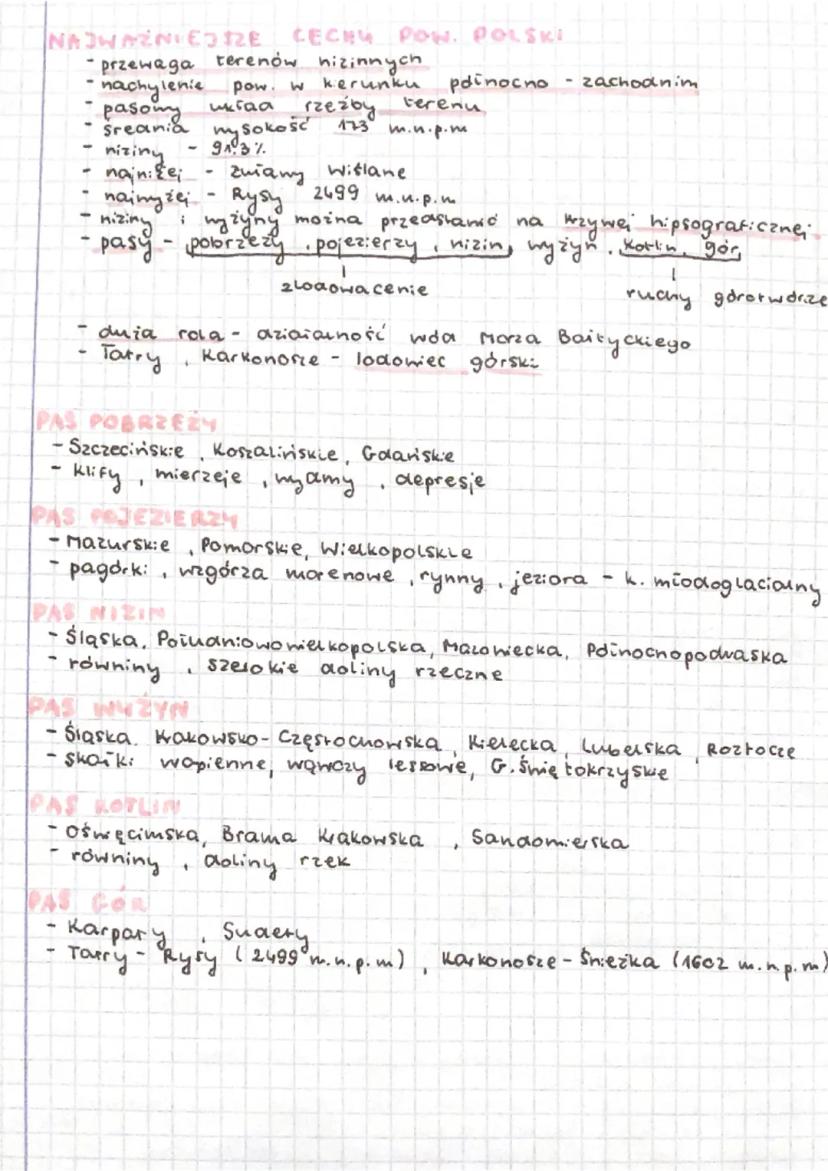 NAJWAŻNIEJSZE CECHY POW. POLSKI
- przewaga terenów nizinnych
- nachylenie pow. w kerunku północno - zachodnim
- pasowy układ rzeźby terenu
- średnia wysokość 173 m.n.p.m
- niziny - 91.3%
- najniżej - Żuławy Wiślane
- najwyżej - Rysy 2499 m.n.p.m
- niziny i wyżyny można przedstawić na krzywej hipsograficznej
- pasy - pobrzeży, pojezierzy, nizin, wyżyn, kotlin, gór,
zlodowacenie
ruchy górotwórcze
- duża rola - działalność wód Morza Bałtyckiego
- Tatry, Karkonosze - lodowiec górski
PAS POBRZEŻY
- Szczecińskie, Koszalińskie, Gdańskie
- klify, mierzeje, wydmy, depresje
PAS POJEZIERZY
- Mazurskie, Pomorskie, Wielkopolskie
- pagórki, wzgórza morenowe, rynny, jeziora - k. młodoglacjalny
PAS NIZIN
- Śląska, Południowowielkopolska, Mazowiecka, Północnopodlaska
- równiny, szerokie doliny rzeczne
PAS WYŻYN
- Śląska, Krakowsko-Częstochowska, Kielecka, Lubelska, Roztocze
- skałki wapienne, wąwozy lessowe, G. Świętokrzyskie
PAS KOTLIN
- Oświęcimska, Brama Krakowska, Sandomierska
- równiny, doliny rzek
PAS GÓR
- Karpaty, Sudety
- Tatry - Rysy (2499 m.n.p.m), Karkonosze - Śnieżka (1602 m.n.p.m)